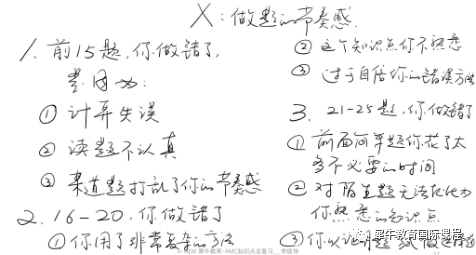 X：做题的节奏感
1. 前15题，你做错了，
是因为：
① 计算失误
② 读题不认真
③ 某道题打乱了你的节奏感
2. 16-20，你做错了
① 你用了非常复杂的方法
② 这个知识点你不熟悉
③ 过于自信你的错误方法
3. 21-25题，你做错了
① 前面简单题你花了太
多不必要的时间
② 对陌生题无法转化为
你熟悉的知识点
③ 你认
犀牛教育国际课程